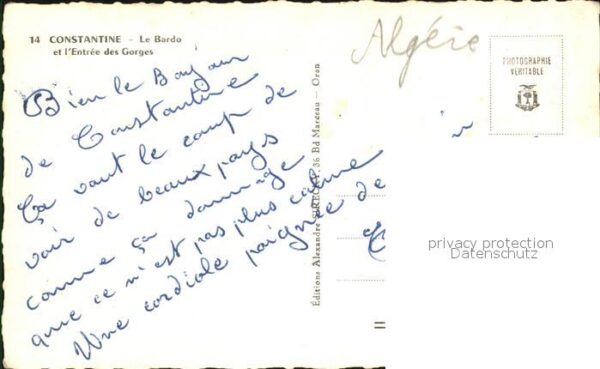 14 CONSTANTINE - Le Bardo
et l'Entrée des Gorges
Algérie
PHOTOGRAPHIE
VÉRITABLE
Bien le Bonjour
de Constantine
Ça vaut le coup de
voir de beaux pays
comme ça dommage
que ce n'est pas plus calme
Une cordiale poignée de
Éditions Alexandre 36 Bd Marceau - Oran
privacy protection
Datenschutz